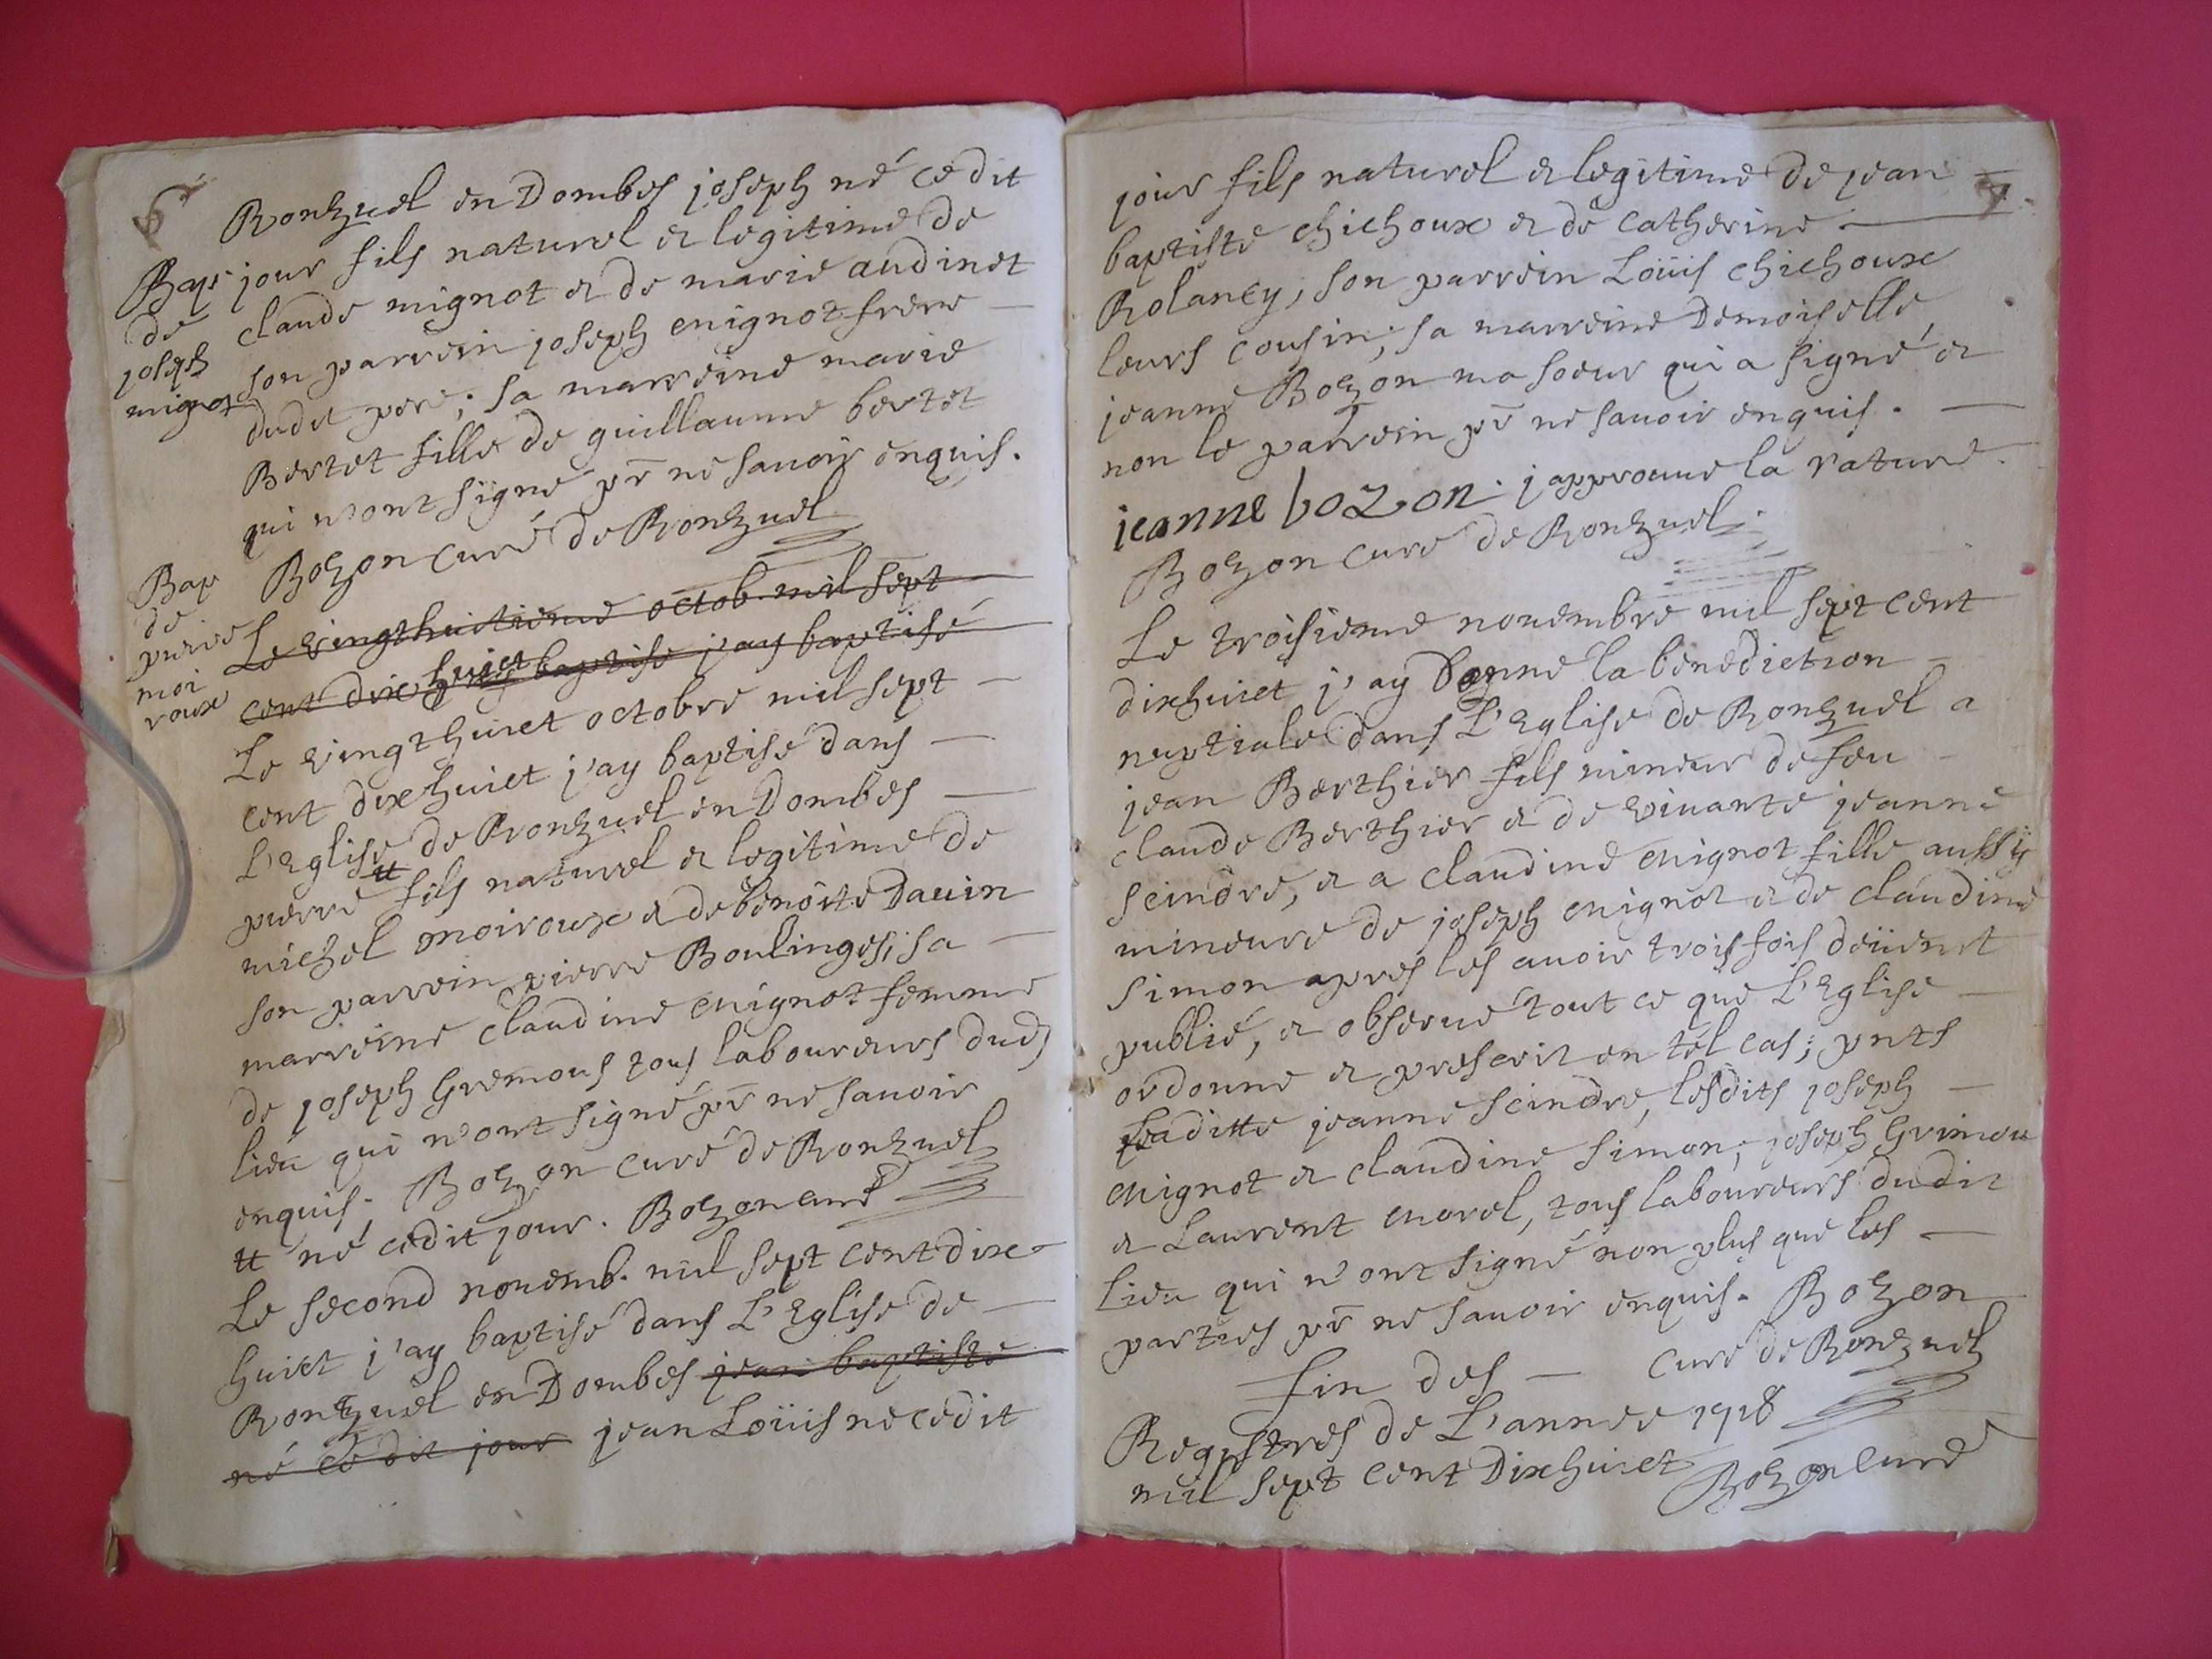 6
Ronzuel en Dombes joseph né ce dit
jour fils naturel et legitime de
claude mignot et de marie audinet
son parrein joseph mignot frere
dudit pere; sa marreine marie
Bertet fille de guillaume bertet
qui n'ont signé pr ne savoir enquis.
Bozon curé de Ronzuel
Bap
de
joseph
mignot
Bap
de
pierre
moi
roux
Le vingthuitieme octob. mil sept
cent dix huict baptise j'ay baptisé
Le vingthuict octobre mil sept
cent dixhuict j'ay baptisé dans
L'Eglise de Ronzuel en Dombes
pierre tt fils naturel et legitime de
michel moiroux et de benoite Dauin
son parrein pierre Boulinges; sa
marreine claudine mignot femme
de joseph Gremous tous laboureurs dud
lieu qui n'ont signé pr ne savoir
enquis. Bozon curé de Ronzuel
tt né cedit jour. Bozon curé
Le second novemb. mil sept cent dix
huict j'ay baptisé dans L'Eglise de
Ronzuel en Dombes jean baptiste
né ce dit jour jean Loüis né cedit
jour fils naturel et legitime de jean
baptiste chichoux et de catherine
Rolancy, son parrein Loüis chichoux
leurs cousin; sa marreine Demoiselle
jeanne Bozon ma soeur qui a signé et
non le parrein pr ne savoir enquis.
jeanne bozon. j approuue la rature.
Bozon curé de Ronzuel.
Le troisieme nouembre mil sept cent
dixhuict j'ay Donné la benediction
nuptiale dans L'Eglise de Ronzuel a
jean Berthier fils mineur de feu
claude Berthier et de vivante jeanne
seindre, et a claudine mignot fille aussÿ
mineure de joseph mignot et de claudine
simon apres les auoir trois fois deüent
publié, et obserué tout ce que L'Eglise
ordonne et prescrit en tel cas; pnts
laditte jeanne seindre, lesdits joseph
mignot et claudine simon, joseph Grimou
et Laurent morel, tous laboureurs dudit
lieu qui n'ont signé non plus que les
parties pr ne savoir enquis. Bozon
curé de Ronzuel
fin des
Registres de L'annee 1718
mil sept cent Dixhuict Bozon curé